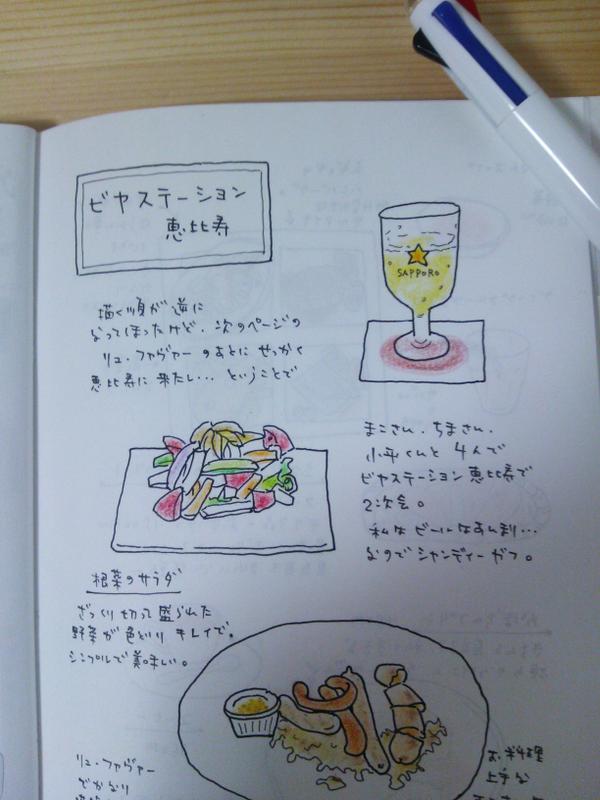 ビヤステーション
恵比寿
SAPPORO
描く順が逆に
なってしまったけど、次のページの
リュ・ファヴァーのあとにせっかく
恵比寿に来たし…ということで
まこさん、ちまさん、
小平くんと4人で
ビヤステーション恵比寿で
2次会。
私はビールはあんまり…
なのでシャンディーガフ。
根菜のサラダ
ざっくり切って盛られた
野菜が色どりキレイで。
シンプルで美味しい。
リュ・ファヴァー
でかなり
お料理
上手な